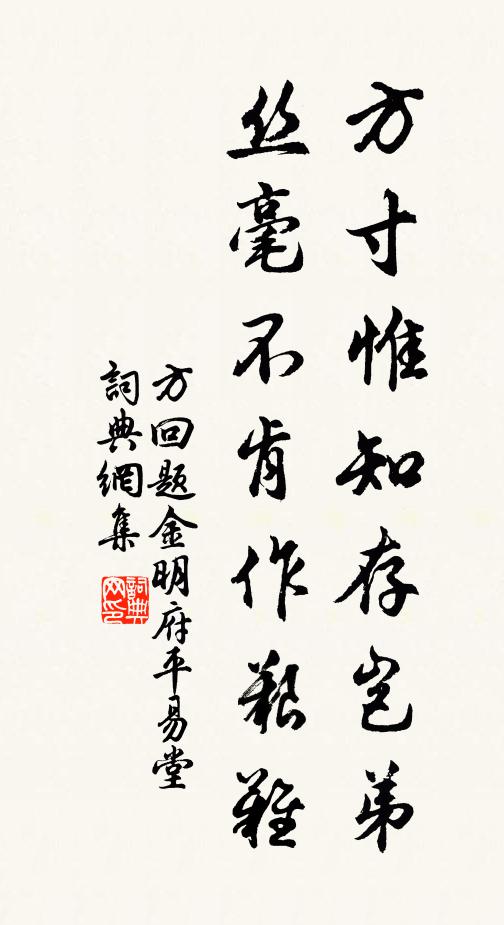 方寸惟知存岂弟
丝毫不肯作艱難
方回题金明府平易堂
詞典網集
詞典網印